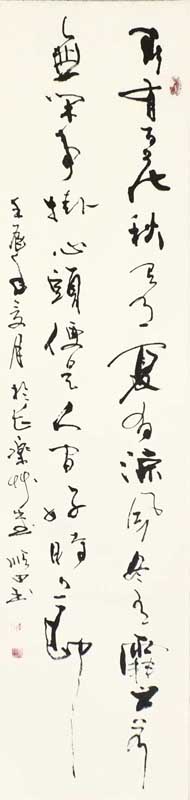 春有百花秋有月夏有涼風冬有雪若
無閑事掛心頭便是人間好時節
壬辰年夏月於長樂艸堂書